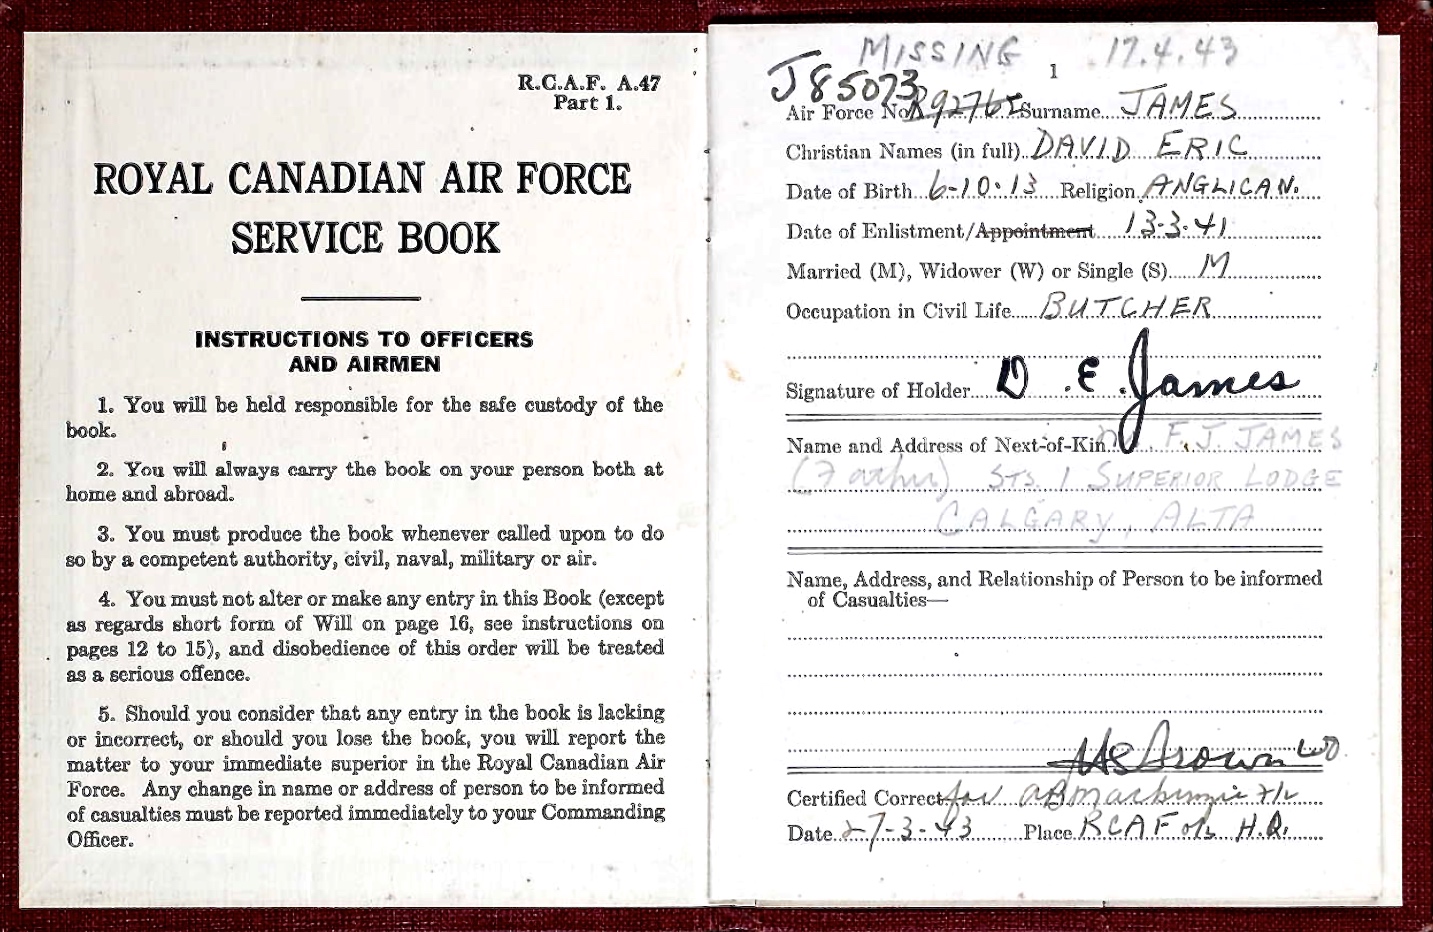 R.C.A.F. A.47
Part 1.
ROYAL CANADIAN AIR FORCE
SERVICE BOOK
INSTRUCTIONS TO OFFICERS
AND AIRMEN
1. You will be held responsible for the safe custody of the
book.
2. You will always carry the book on your person both at
home and abroad.
3. You must produce the book whenever called upon to do
so by a competent authority, civil, naval, military or air.
4. You must not alter or make any entry in this Book (except
as regards short form of Will on page 16, see instructions on
pages 12 to 15), and disobedience of this order will be treated
as a serious offence.
5. Should you consider that any entry in the book is lacking
or incorrect, or should you lose the book, you will report the
matter to your immediate superior in the Royal Canadian Air
Force. Any change in name or address of person to be informed
of casualties must be reported immediately to your Commanding
Officer.
MISSING 17.4.43
1
J85073
Air Force No. R92765 Surname JAMES
Christian Names (in full) DAVID ERIC
Date of Birth 6-10-13 Religion ANGLICAN.
Date of Enlistment/Appointment 13-3-41
Married (M), Widower (W) or Single (S) M
Occupation in Civil Life BUTCHER
Signature of Holder D.E. James
Name and Address of Next-of-Kin F.J. JAMES
(Father) STS. 1 SUPERIOR LODGE
CALGARY, ALTA
Name, Address, and Relationship of Person to be informed
of Casualties—
Brown
Certified Correct for Mackenzie F/L
Date 27-3-43 Place RCAF H.Q.